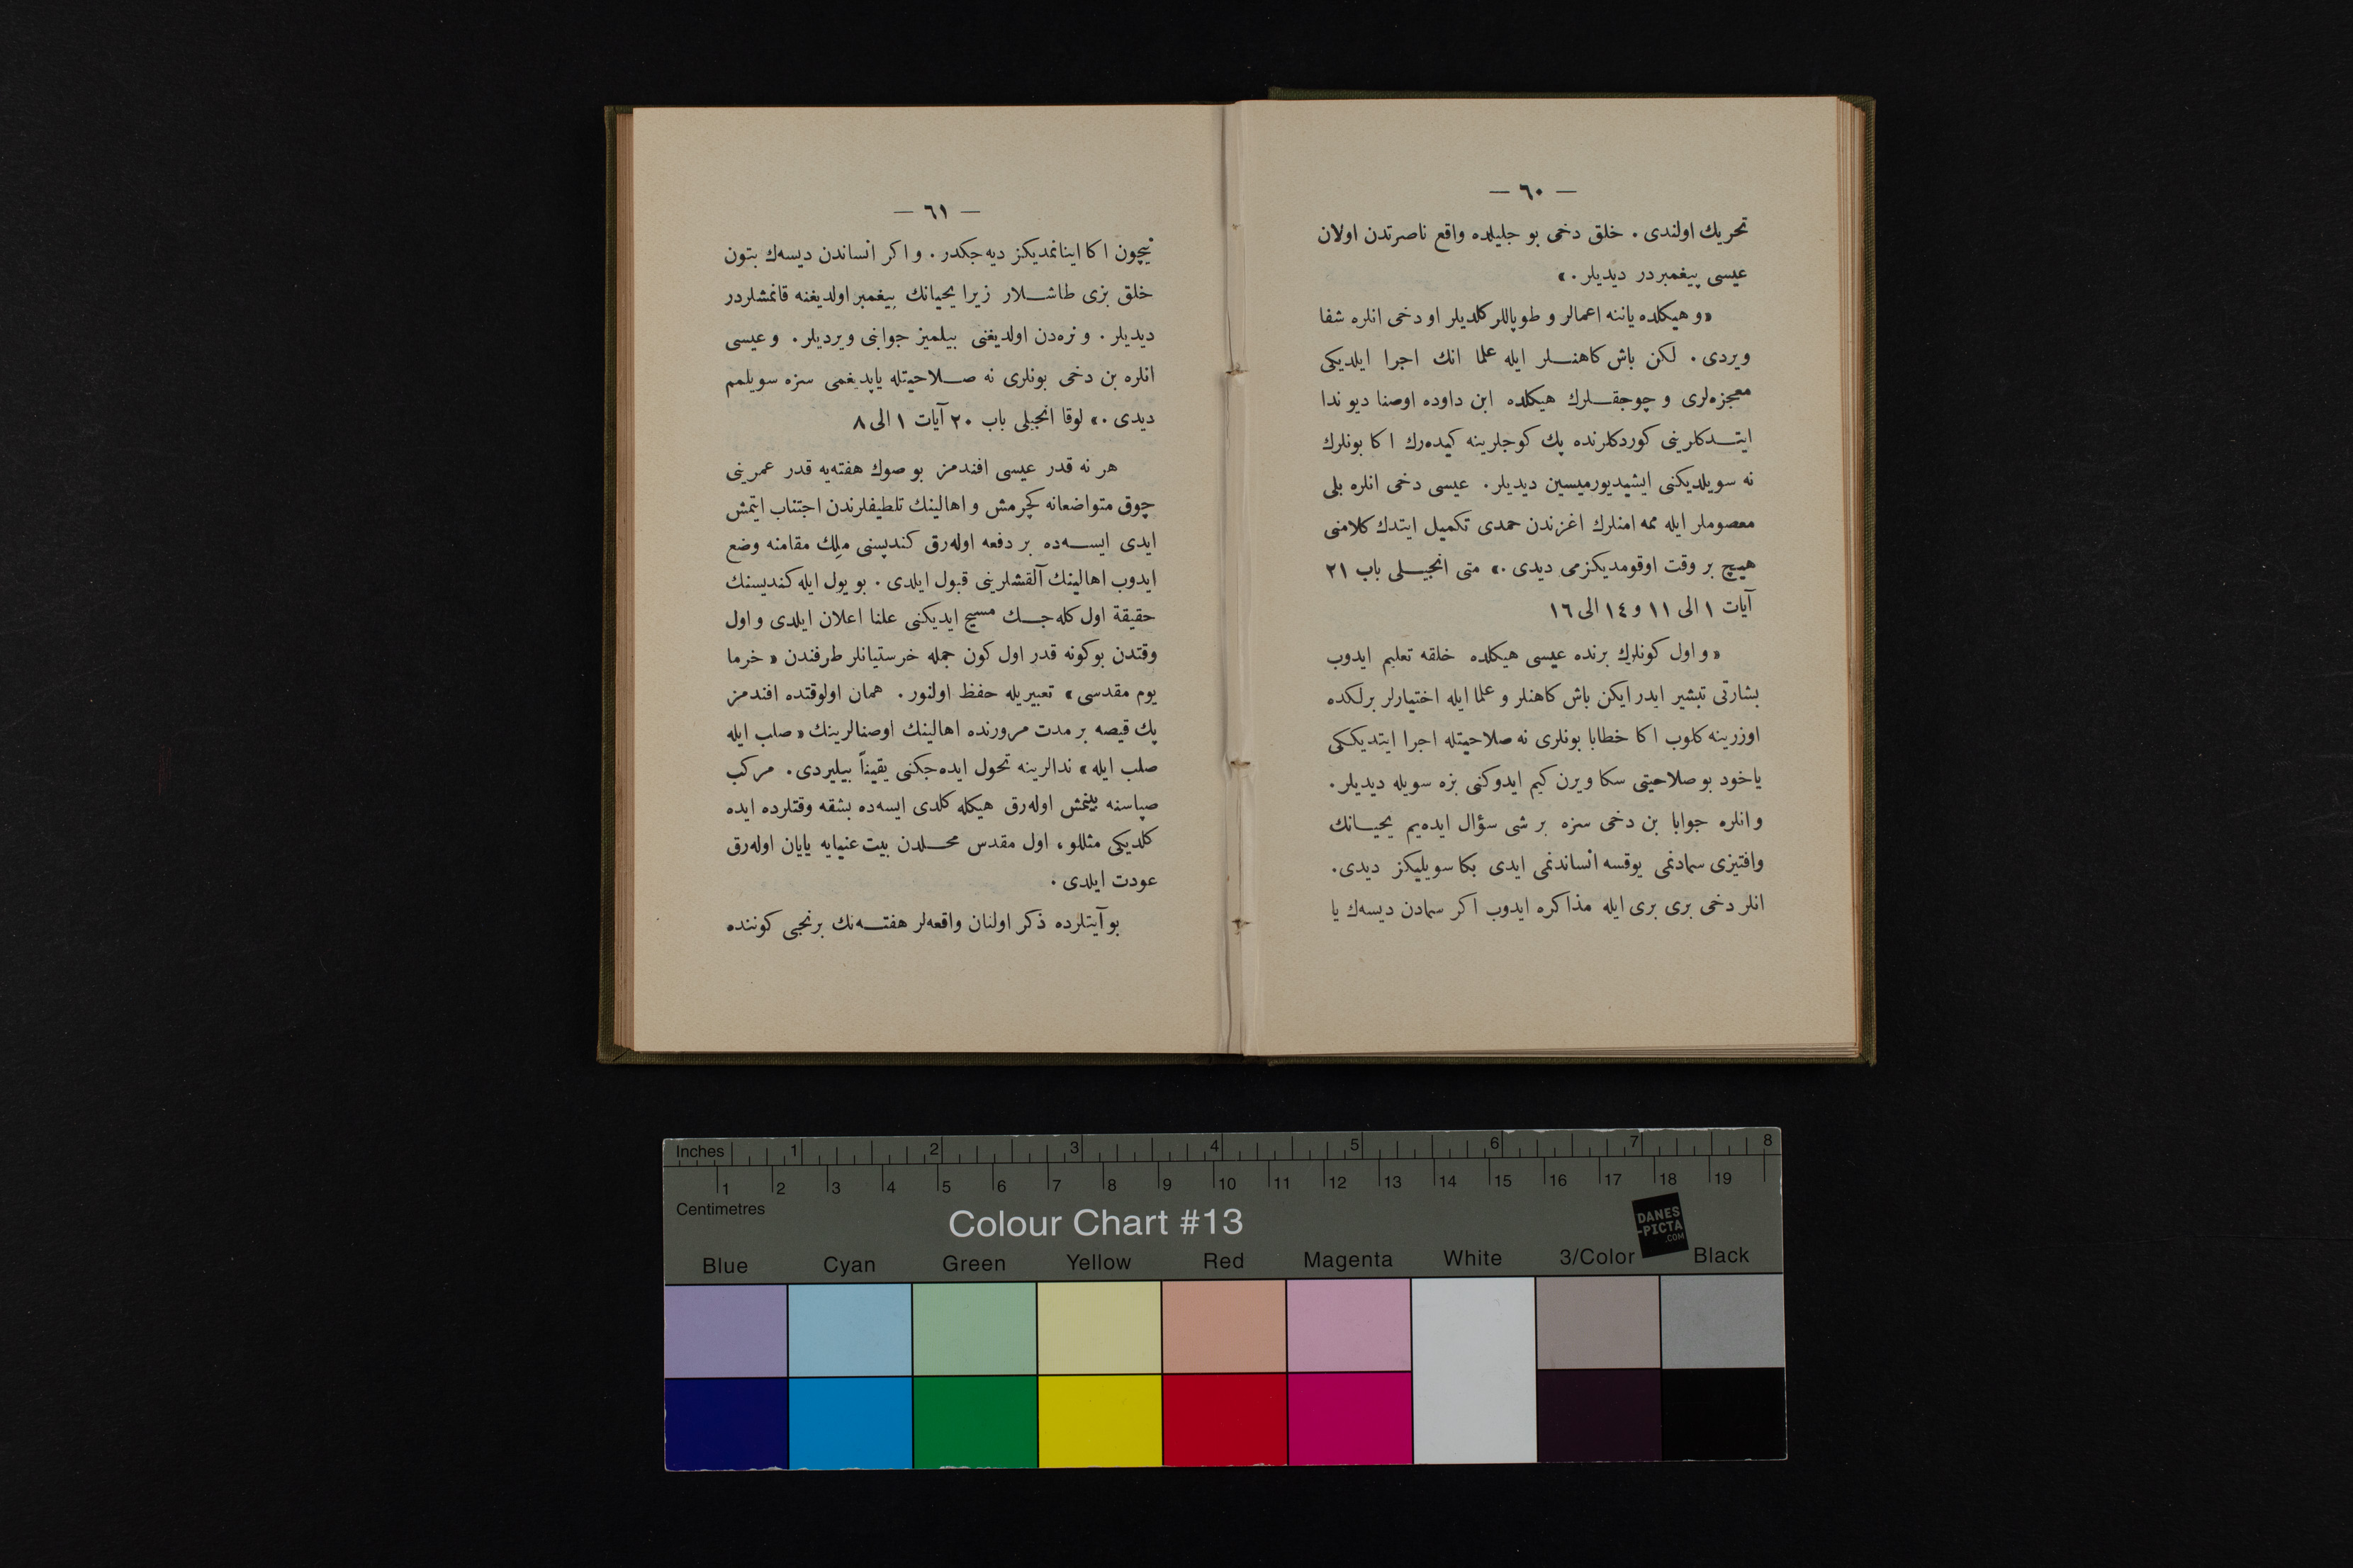 — ٦٠ —
تحريك اولندى . خلق دخى بو جليلده واقع ناصرتدن اولان
عيسى پيغمبردر ديديلر .»
«و هيكلده ياننه اعمالر و طوپاللر كلديلر او دخى انلره شفا
ويردى . لكن باش كاهنلر ايله علما انك اجرا ايلديكى
معجزه‌لرى و چوجقلرك هيكلده ابن داوده اوصنا ديو ندا
ايتدكلرينى كوردكلرنده پك كوجلرينه كيده‌رك اكا بونلرك
نه سويلديكنى ايشيديورميسين ديديلر . عيسى دخى انلره بلى
معصوملر ايله ممه امنلرك اغزندن حمدى تكميل ايتدك كلامنى
هيچ بر وقت اوقومديكزمى ديدى .» متى انجيلى باب ٢١
آيات ١ الى ١١ و ١٤ الى ١٦
«و اول كونلرك برنده عيسى هيكلده خلقه تعليم ايدوب
بشارتى تبشير ايدر ايكن باش كاهنلر و علما ايله اختيارلر برلكده
اوزرينه كلوب اكا خطابا بونلرى نه صلاحيتله اجرا ايتديككى
ياخود بو صلاحيتى سكا ويرن كيم ايدوكنى بزه سويله ديديلر .
و انلره جوابا بن دخى سزه بر شى سؤال ايده‌يم يحيانك
وافتيزى سمادنمى يوقسه انساندنمى ايدى بكا سويليكز ديدى .
انلر دخى برى برى ايله مذاكره ايدوب اكر سمادن ديسه‌ك يا
— ٦١ —
نيچون اكا اينانمديكز ديه‌جكدر . و اكر انساندن ديسه‌ك بتون
خلق بزى طاشلار زيرا يحيانك پيغمبر اولديغنه قانمشلردر
ديديلر . و نره‌دن اولديغنى بيلميز جوابنى ويرديلر . و عيسى
انلره بن دخى بونلرى نه صلاحيتله ياپديغمى سزه سويلمم
ديدى .» لوقا انجيلى باب ٢٠ آيات ١ الى ٨
هر نه قدر عيسى افندمز بو صوك هفته‌يه قدر عمرينى
چوق متواضعانه كچرمش و اهالينك تلطيفلرندن اجتناب ايتمش
ايدى ايسه‌ده بر دفعه اوله‌رق كنديسنى ملك مقامنه وضع
ايدوب اهالينك آلقشلرينى قبول ايلدى . بو يول ايله كنديسنك
حقيقة اول كله‌جك مسيح ايديكنى علنا اعلان ايلدى و اول
وقتدن بوكونه قدر اول كون جمله خرستيانلر طرفندن «خرما
يوم مقدسى» تعبيريله حفظ اولنور . همان اولوقتده افندمز
پك قيصه بر مدت مرورنده اهالينك اوصنالرينك «صلب ايله
صلب ايله» ندالرينه تحول ايده‌جكنى يقيناً بيليردى . مركب
صپاسنه بينمش اوله‌رق هيكله كلدى ايسه‌ده بشقه وقتلرده ايده
كلديكى مثللو ، اول مقدس محلدن بيت عنيايه يايان اوله‌رق
عودت ايلدى .
بو آيتلرده ذكر اولنان واقعه‌لر هفته‌نك برنجى كوننده
Inches 1 2 3 4 5 6 7 8
1 2 3 4 5 6 7 8 9 10 11 12 13 14 15 16 17 18 19
Centimetres
Colour Chart #13
DANES
-PICTA
.COM
Blue Cyan Green Yellow Red Magenta White 3/Color Black